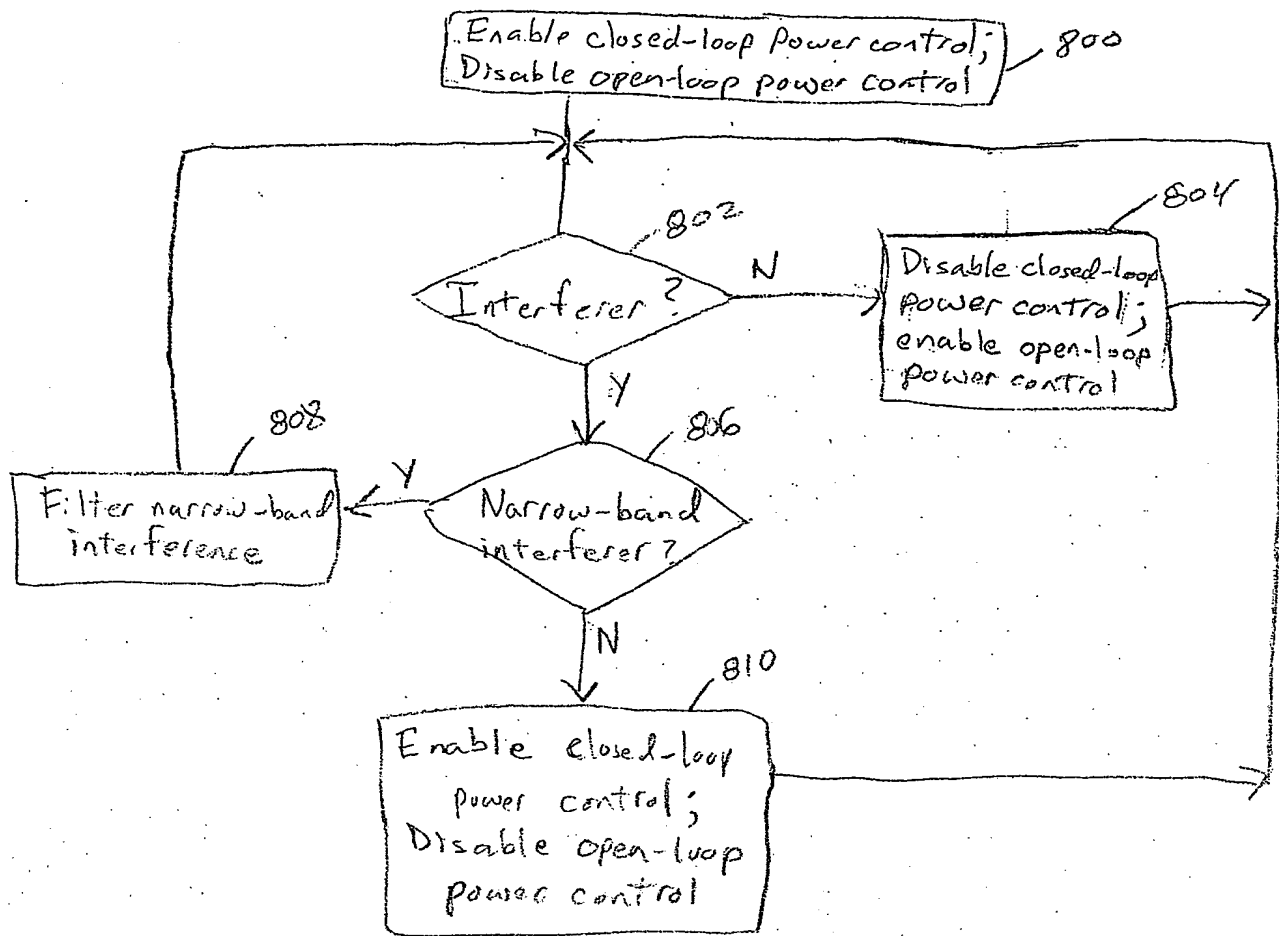 Enable closed-loop Power control;
Disable open-loop power control
800
802
Interferer?
N
804
Disable closed-loop
power control;
enable open-loop
power control
Y
806
Narrow-band
interferer?
Y
808
Filter narrow-band
interference
N
810
Enable closed-loop
power control;
Disable open-loop
power control